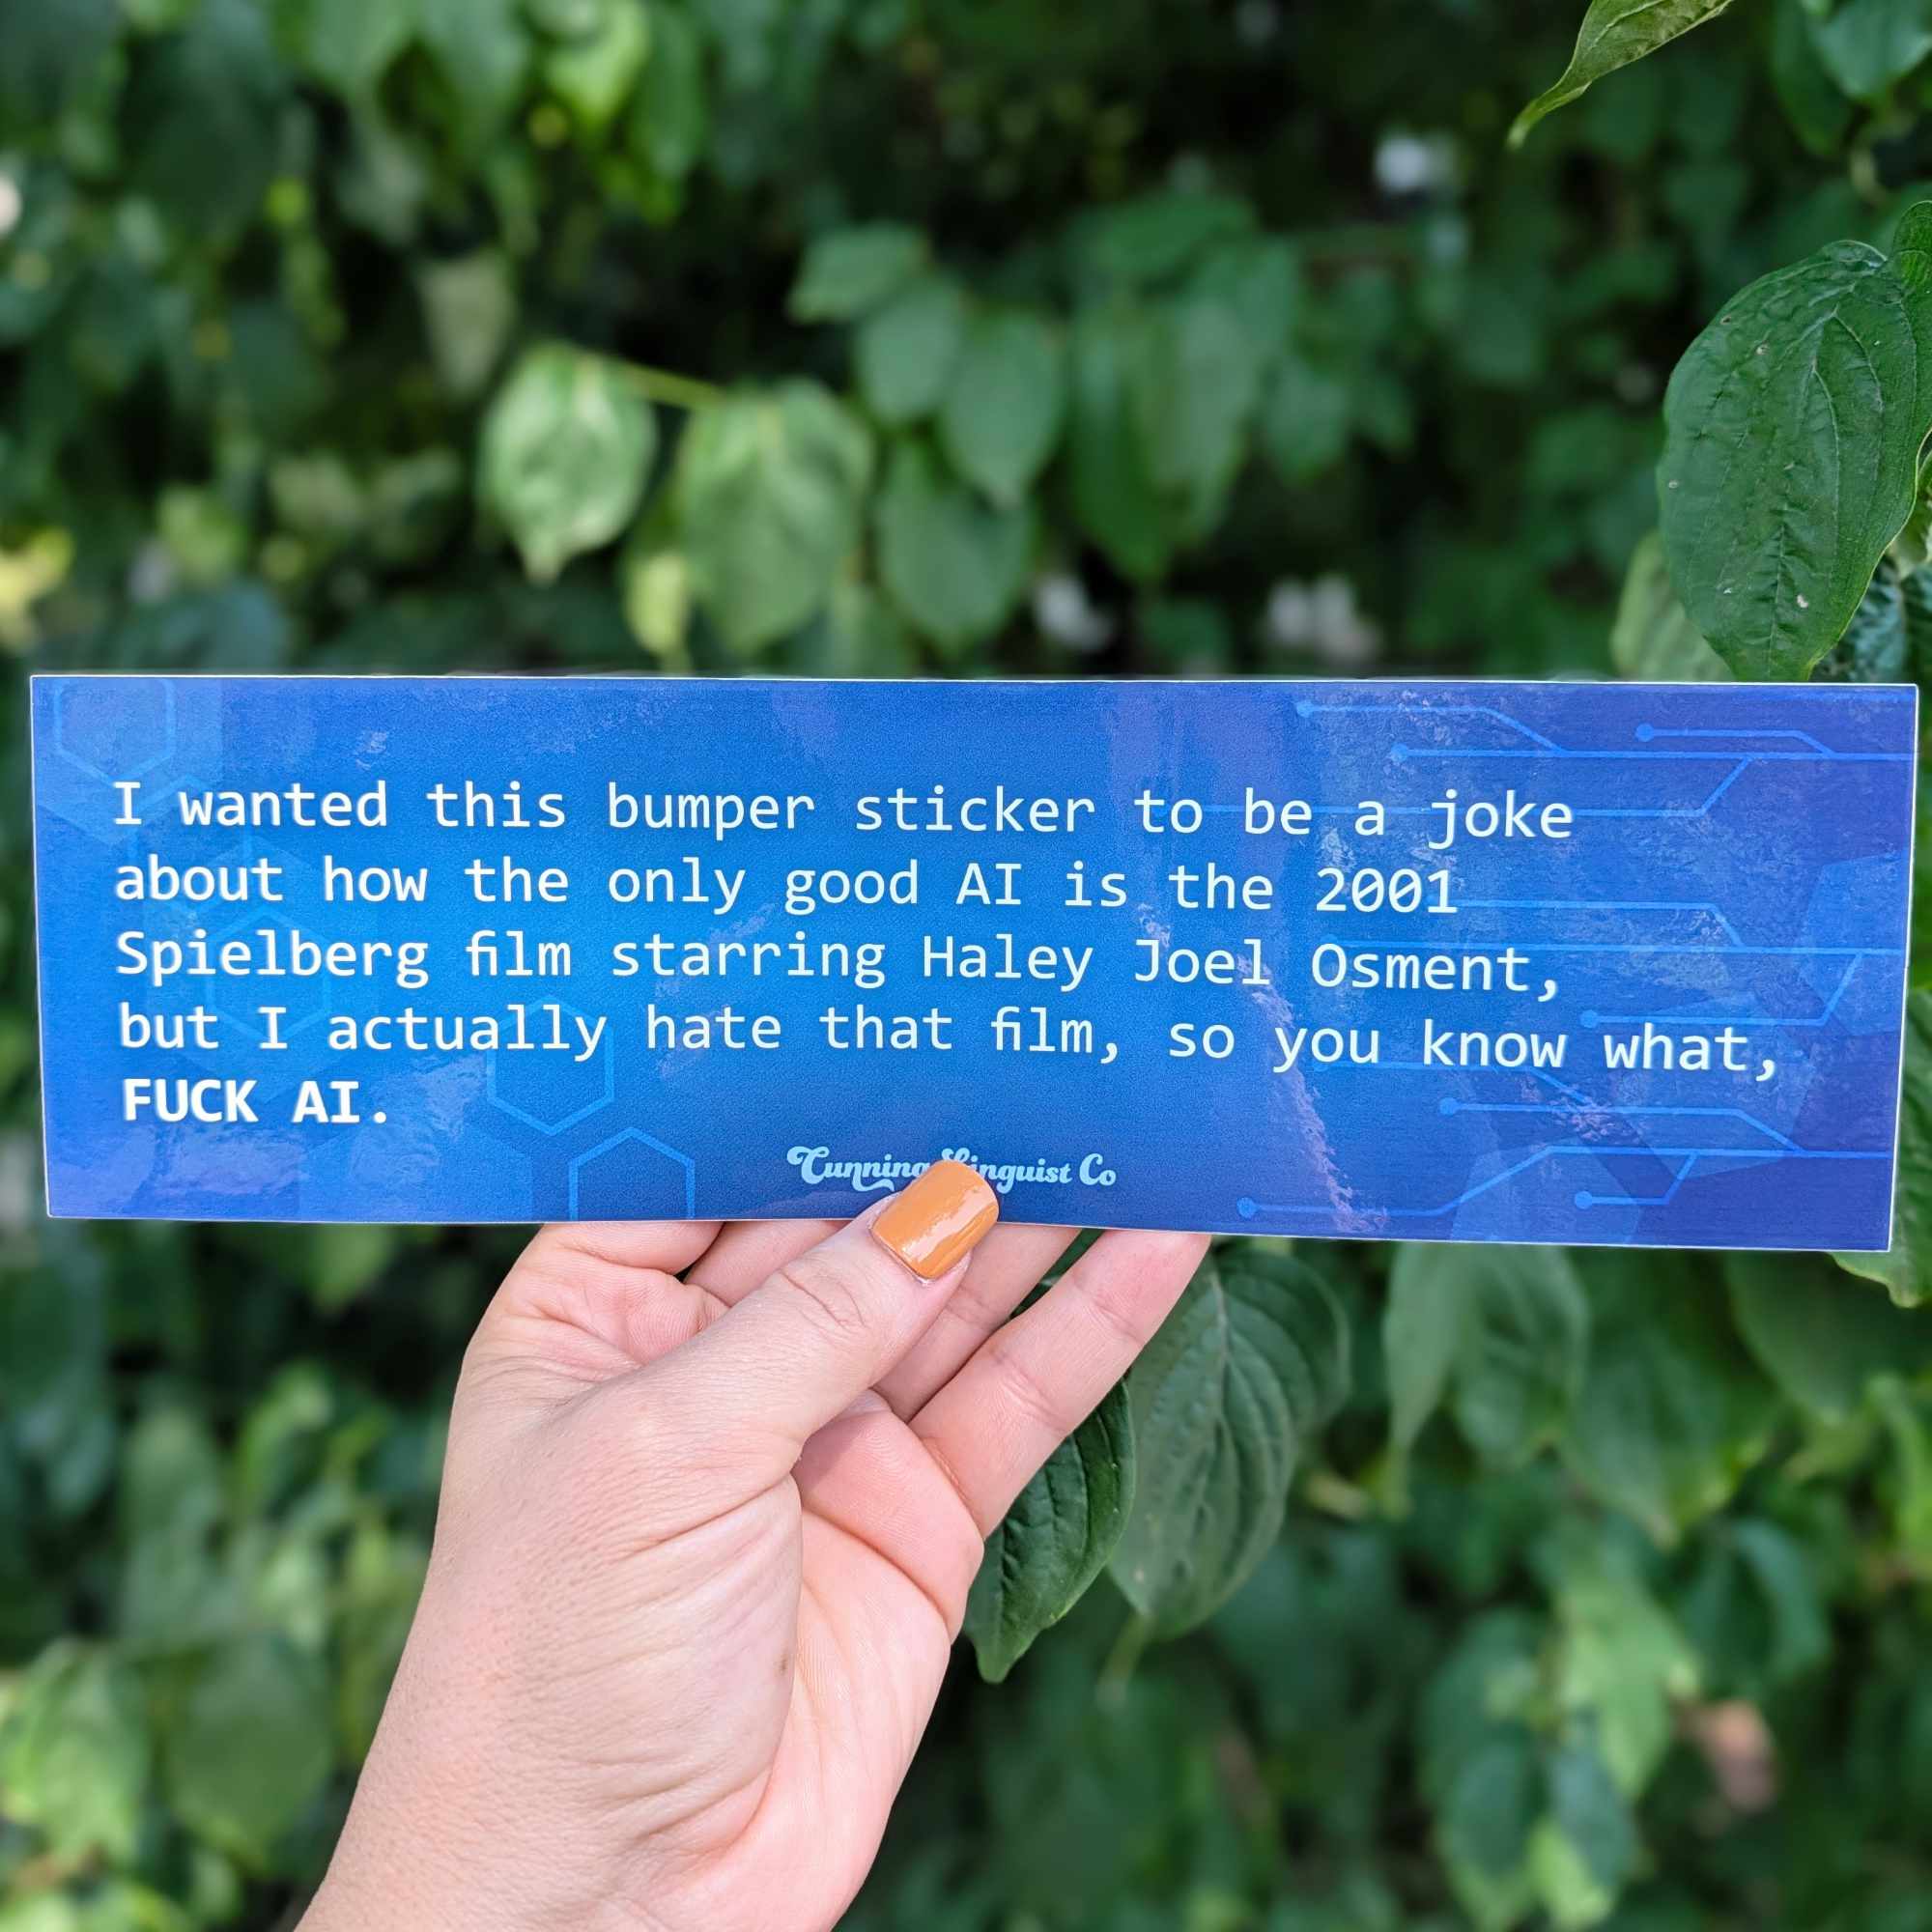 I wanted this bumper sticker to be a joke
about how the only good AI is the 2001
Spielberg film starring Haley Joel Osment,
but I actually hate that film, so you know what,
FUCK AI.
Cunning Linguist Co